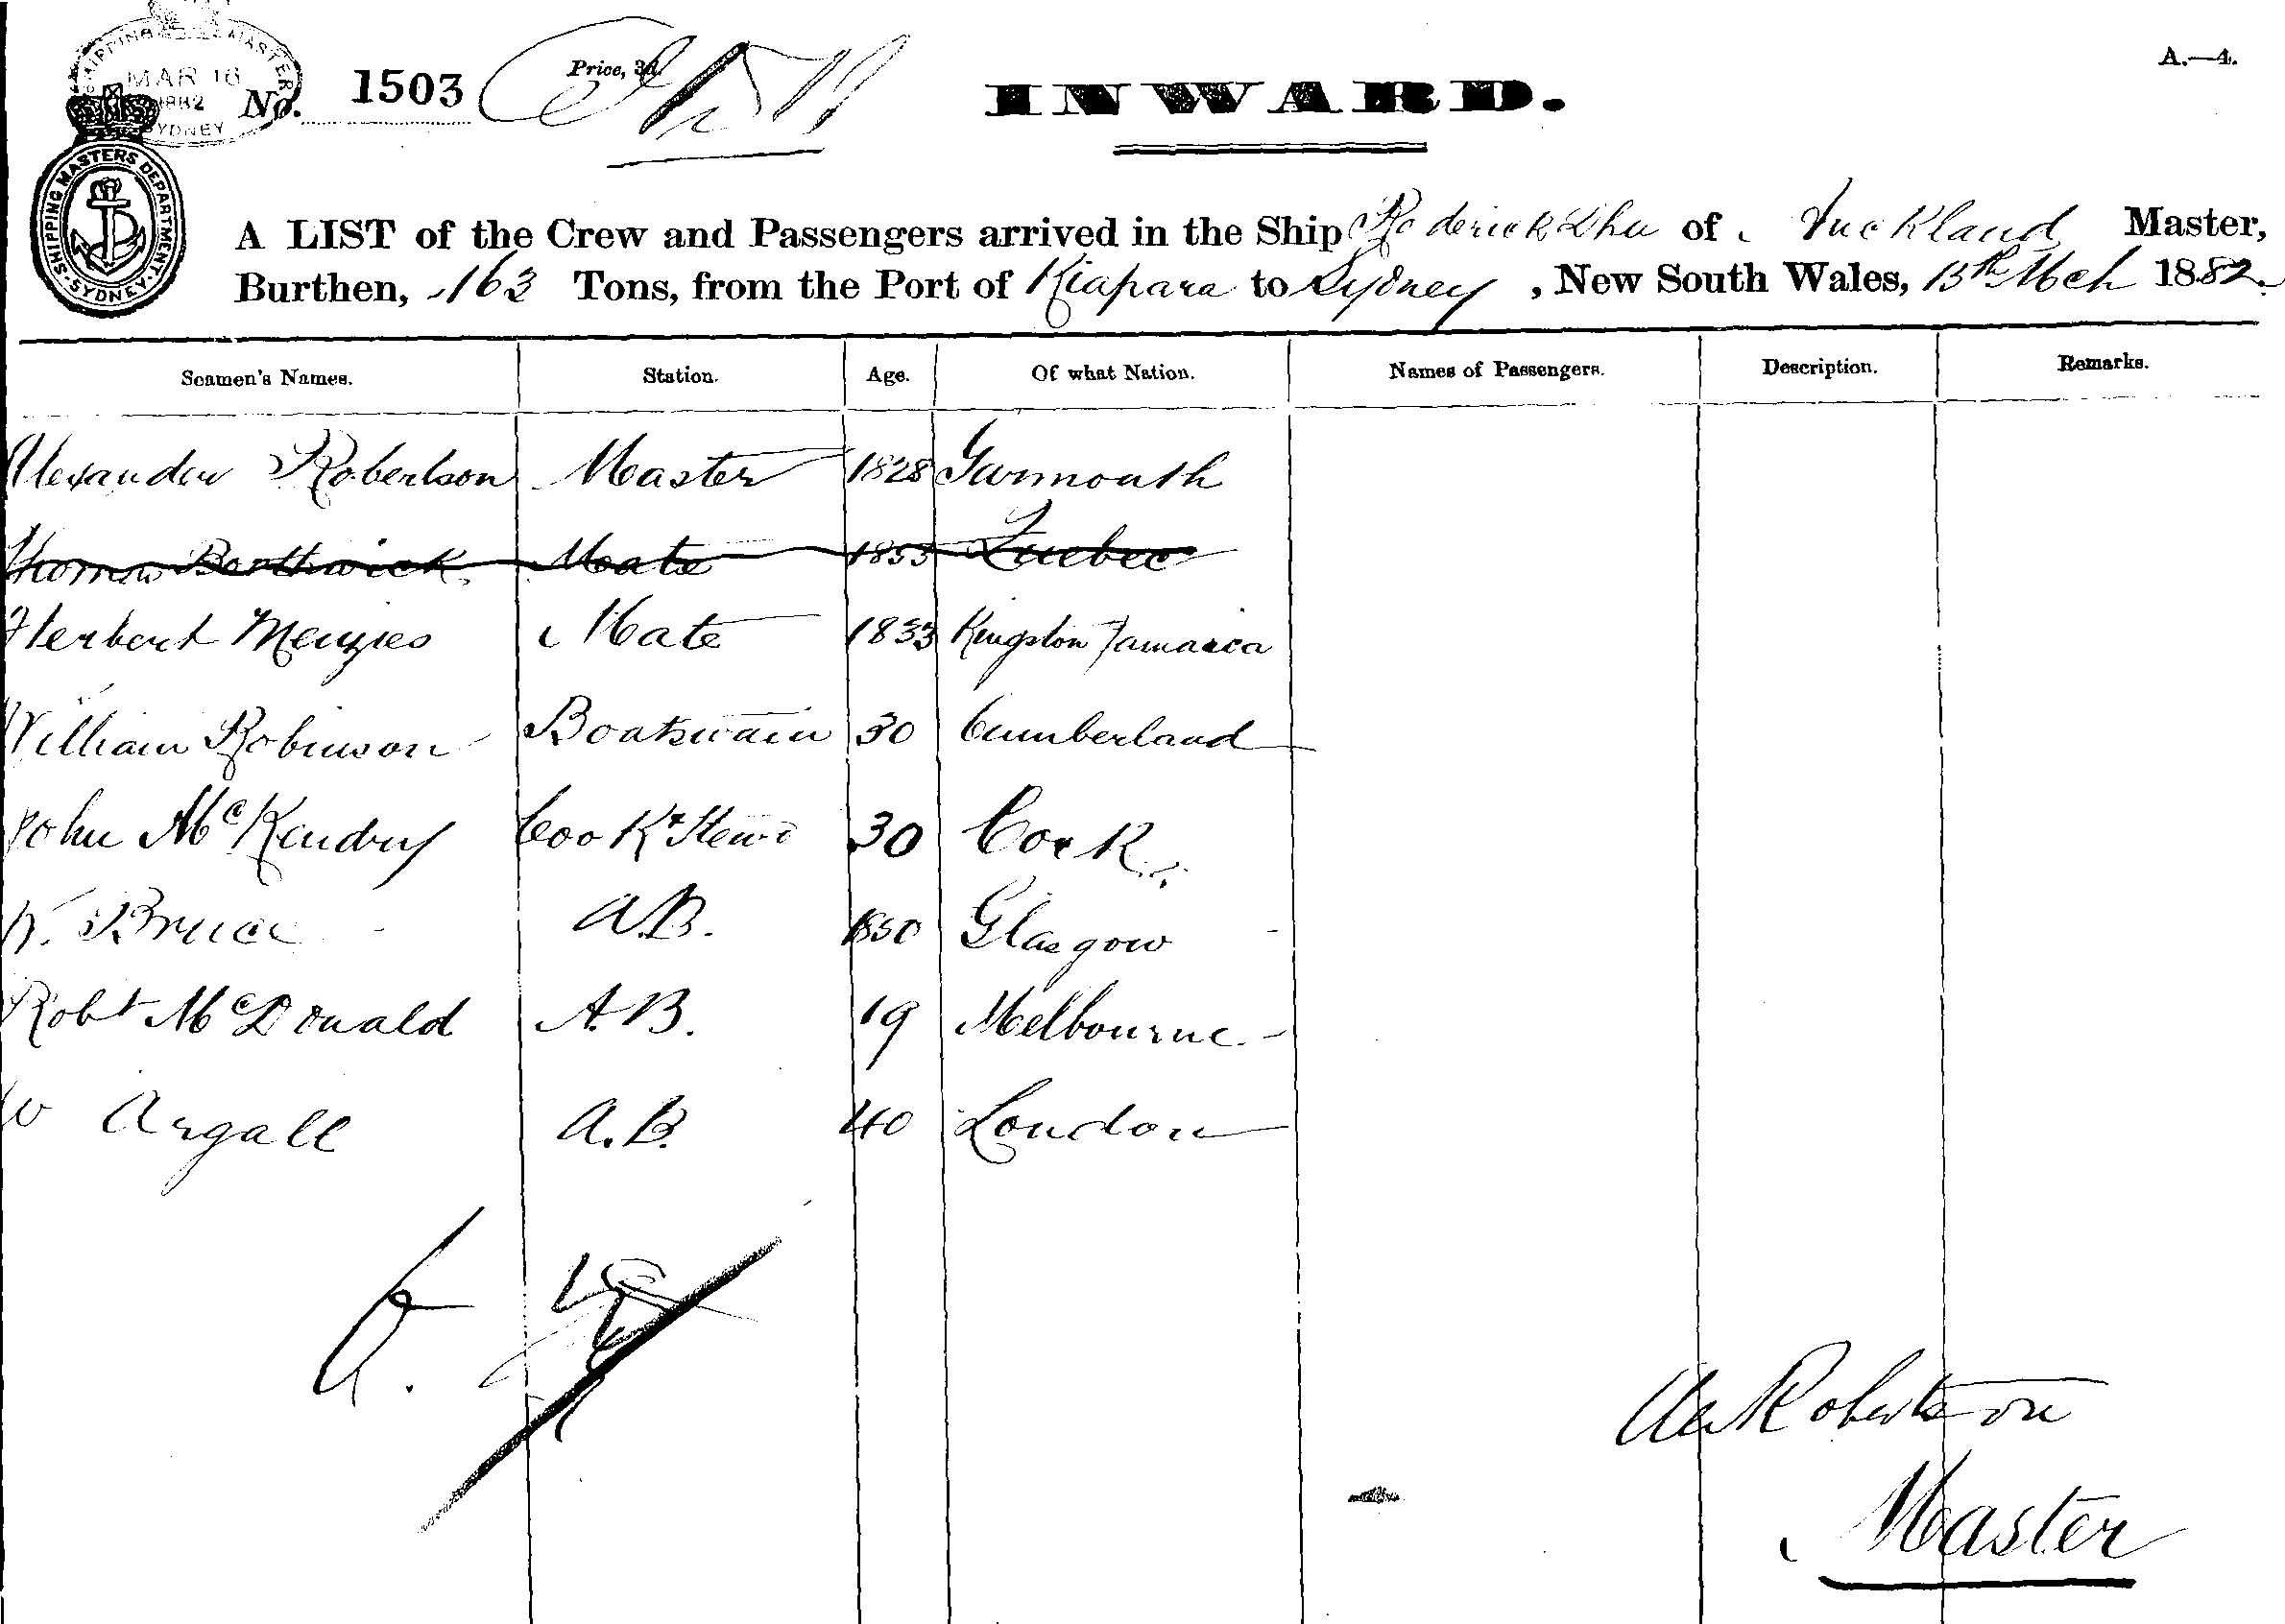 SHIPPING MASTER
MAR 16
1882
SYDNEY
No. 1503
Price, 3d.
INWARD.
A.—4.
SHIPPING MASTERS DEPARTMENT · SYDNEY ·
A LIST of the Crew and Passengers arrived in the Ship Roderick Dhu of Auckland Master,
Burthen, 163 Tons, from the Port of Kiapara to Sydney, New South Wales, 15th Mch 1882.
Seamen's Names. Station. Age. Of what Nation. Names of Passengers. Description. Remarks.
Alexander Robertson Master 1828 Yarmouth
Thomas Borthwick Mate 1853 Quebec
Herbert Menzies Mate 1833 Kingston Jamaica
William Robinson Boatswain 30 Cumberland
John McKendry Cook & Stewd 30 Cork
Bruce A.B. 1850 Glasgow
Robt McDonald A.B. 19 Melbourne
W Argall A.B. 40 London
Alex Robertson
Master